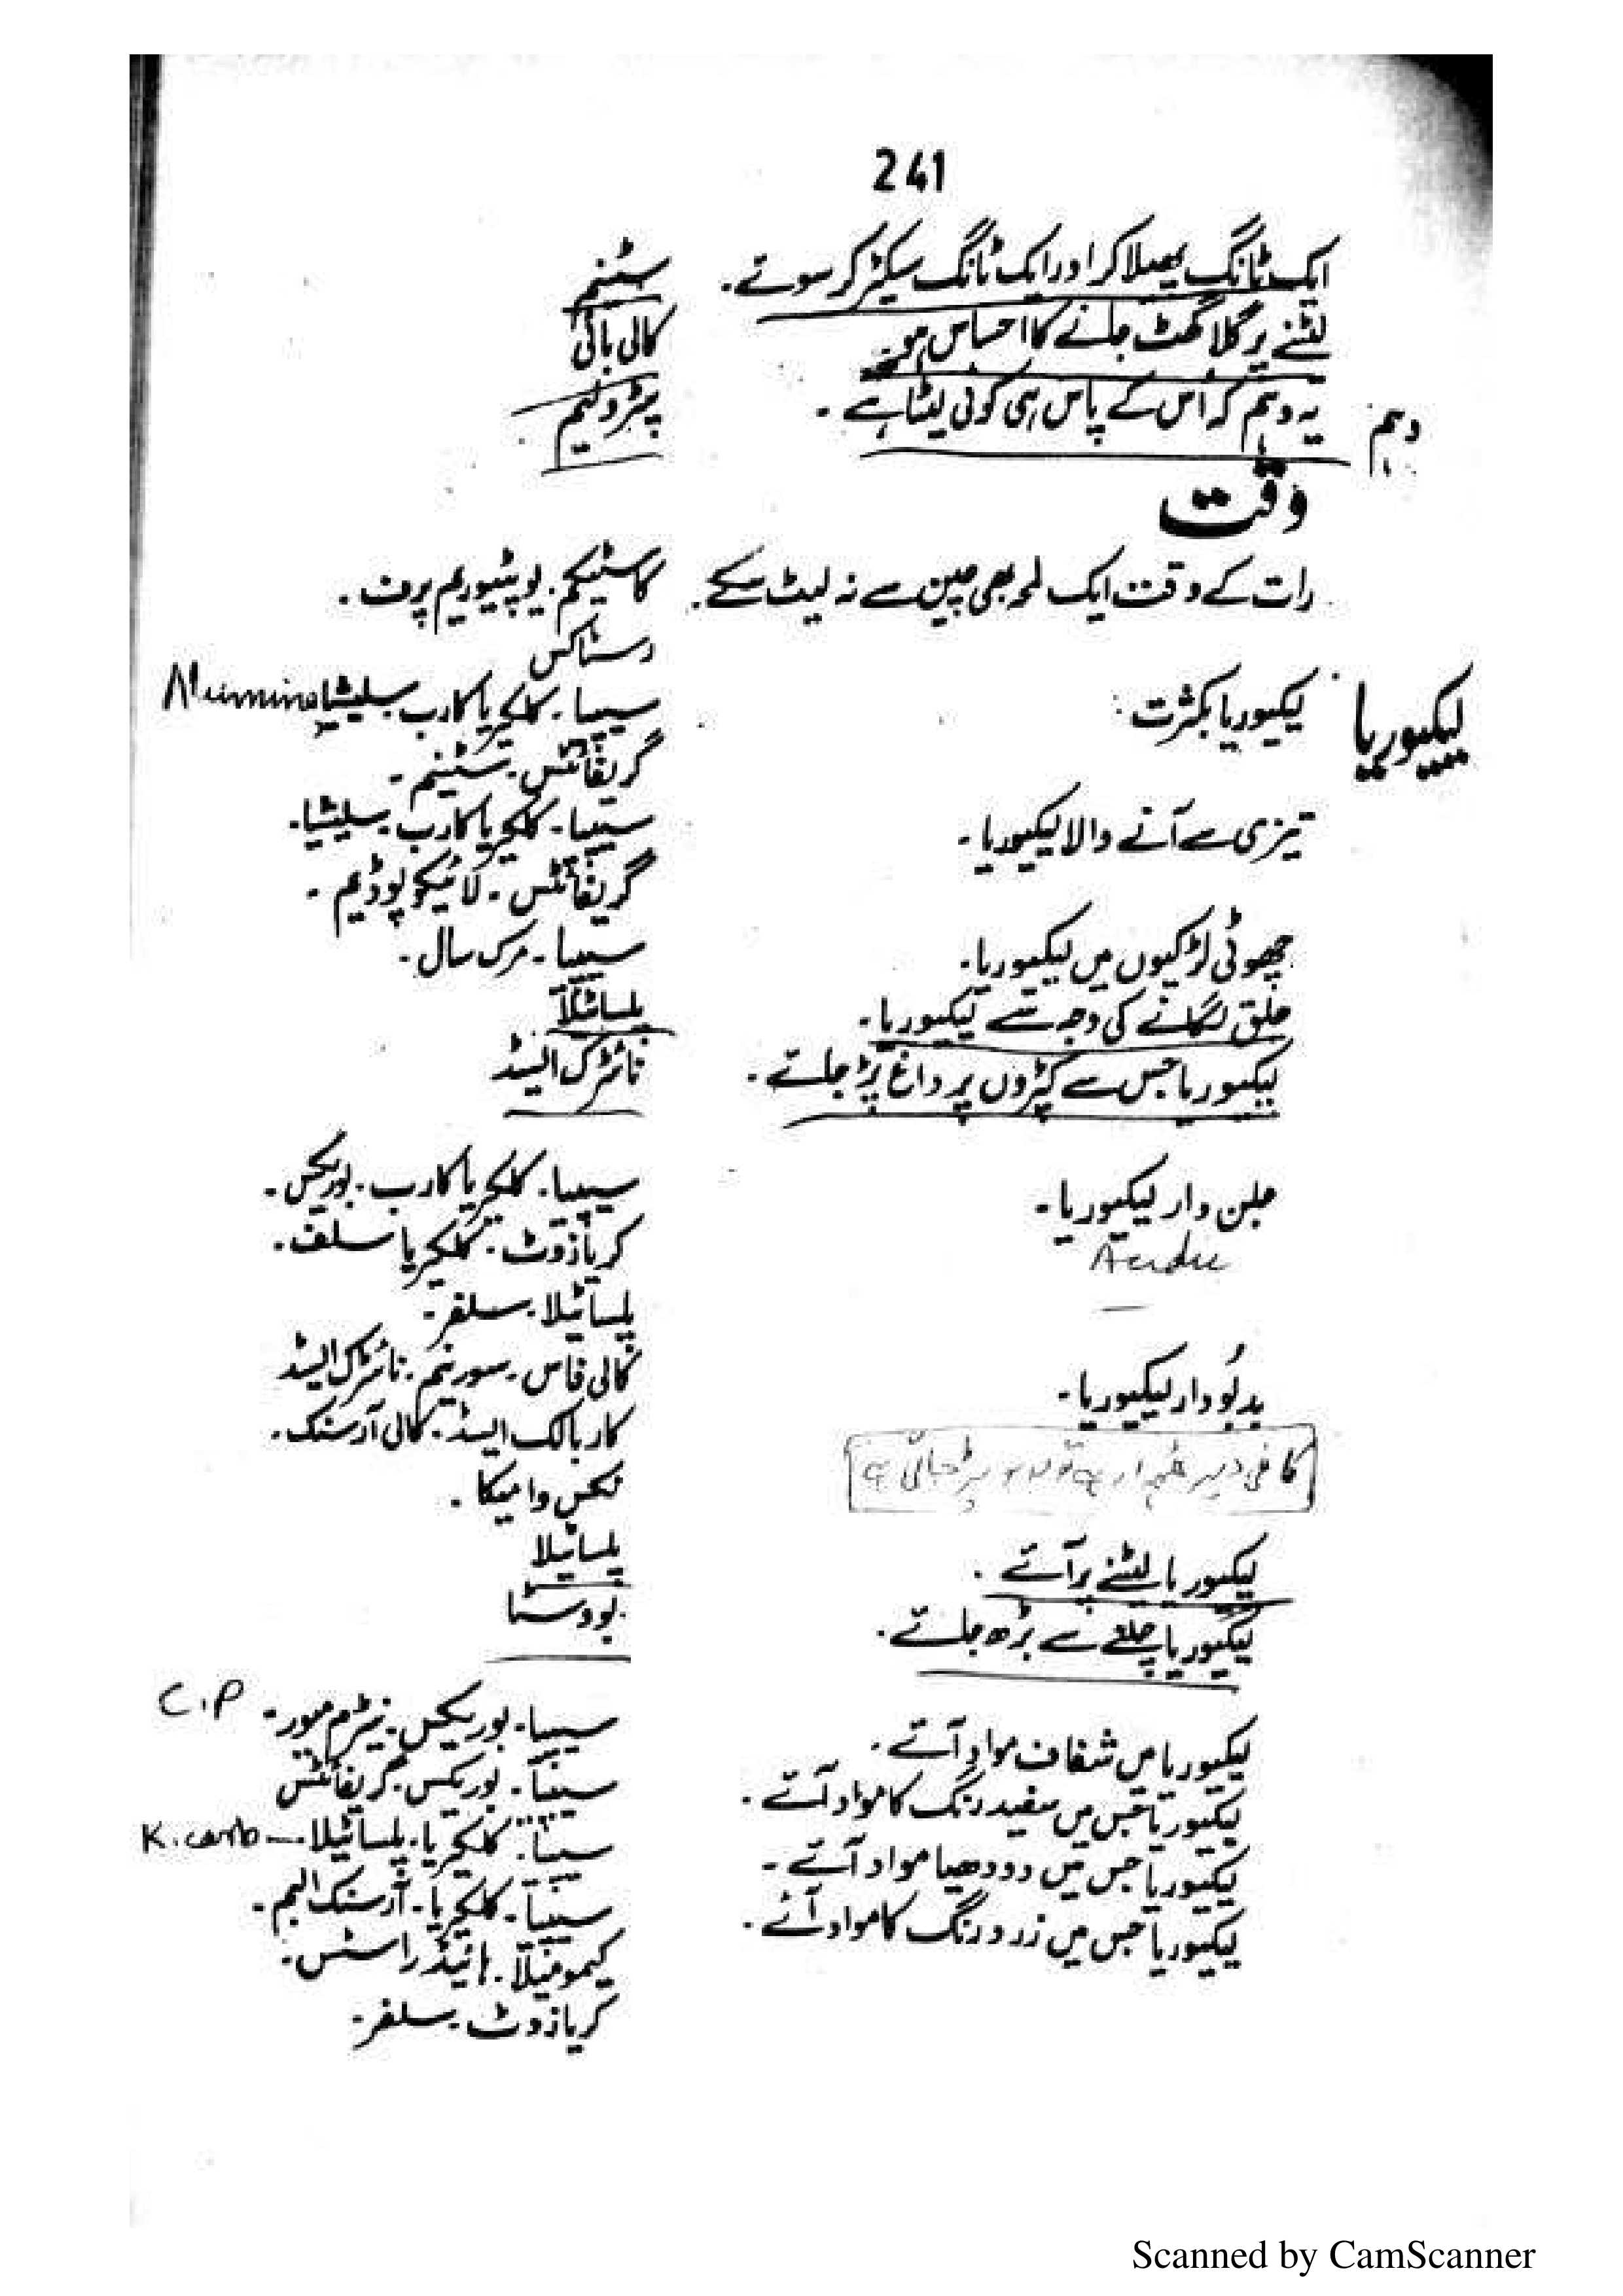 241
ایک ٹانگ پھیلا کر اور ایک ٹانگ سیکڑ کر سوتے۔ سٹینم
لٹنے پر گلا گھٹ جانے کا احساس ہو۔ کالی بائی
وہم یہ وہم کہ اس کے پاس ہی کوئی لیٹا ہے۔ پٹرولیم
وقت
رات کے وقت ایک لمحہ بھی چین سے نہ لیٹ سکے۔ کاسٹیکم۔ یوپٹیوریم پرف۔
رسٹاکس
لیکیوریا لیکیوریا بکثرت: سیپیا۔ کلکیریا کارب۔ سلیشیا Alumina
گریفائٹس۔ سٹینم۔
تیزی سے آنے والا لیکیوریا۔ سیپیا۔ کلکیریا کارب۔ سلیشیا۔
گریفائٹس۔ لائیکوپوڈیم۔
چھوٹی لڑکیوں میں لیکیوریا۔ سیپیا۔ مرک سال۔
جلق لگانے کی وجہ سے لیکیوریا۔ پلساٹیلا
لیکیوریا جس سے کپڑوں پر داغ پڑ جاتے۔ نائٹرک ایسڈ
جلن دار لیکیوریا۔ سیپیا۔ کلکیریا کارب۔ بوریکس۔
Acidic کریازوٹ۔ کلکیریا سلف۔
پلساٹیلا۔ سلفر۔
بدبُودار لیکیوریا۔ کالی فاس۔ سورینم۔ نائٹرک ایسڈ
کاربالک ایسڈ۔ کالی آرسنک۔
کافی دیر پڑ جاتی ہے نکس وامیکا۔
لیکیوریا لیٹنے پر آتے۔ پلساٹیلا
لیکیوریا چلنے سے بڑھ جاتے۔ بووسٹا
لیکیوریا میں شفاف مواد آتے۔ سیپیا۔ بوریکس۔ نیٹرم میور۔ C.P
لیکیوریا جس میں سفید رنگ کا مواد آتے۔ سیپیا۔ بوریکس۔ گریفائٹس
لیکیوریا جس میں دودھیا مواد آتے۔ سیپیا۔ کلکیریا۔ پلساٹیلا۔ K. carb
لیکیوریا جس میں زرد رنگ کا مواد آئے۔ سیپیا۔ کلکیریا۔ آرسنک البم۔
کیمومیلا۔ ہائیڈراسٹس۔
کریازوٹ۔ سلفر۔
Scanned by CamScanner